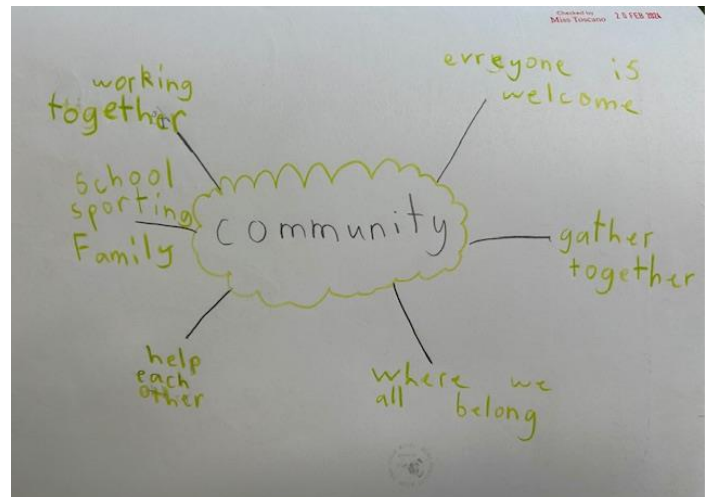 Checked by
Miss Toscano
20 FEB 2024
working
together
evreyone is
welcome
school
sporting
Family
community
gather
together
help
each
other
where we
all belong